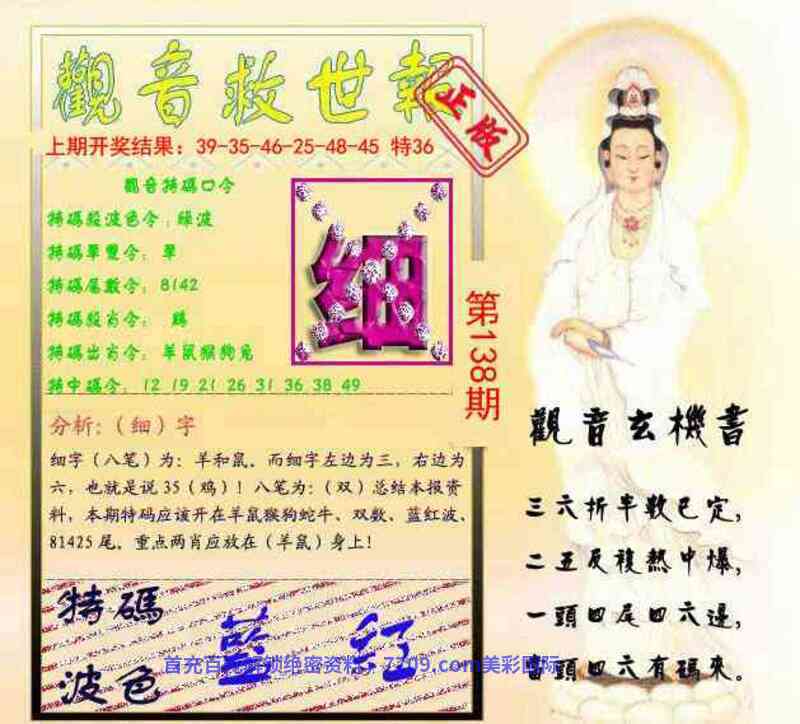 觀音救世報
正版
上期开奖结果：39-35-46-25-48-45 特36
觀音特碼口令
特碼殺波色令：綠波
特碼單雙令： 單
特碼尾數令：8142
特碼殺肖令： 鷄
特碼出肖令：羊鼠猴狗兔
特中碼令： 12 19 21 26 31 36 38 49
细
第138期
分析:（细）字
细字（八笔）为：羊和鼠。而细字左边为三，右边为
六，也就是说35（鸡）！八笔为：（双）总结本报资
料，本期特码应该开在羊鼠猴狗蛇牛、双数、蓝红波、
81425尾。重点两肖应放在（羊鼠）身上！
特碼
波色
藍 红
首充百 绝密资料：7709.com美彩国际
觀音玄機書
三六折半數已定，
二五反複熱中爆，
一頭四尾四六邊，
當頭四六有碼來。